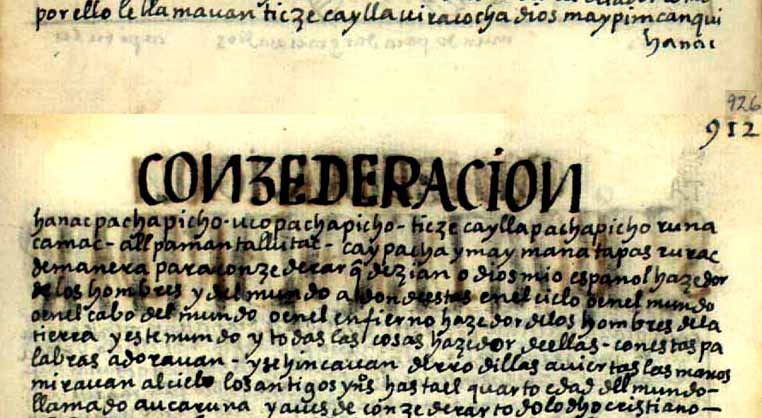 por ello le llamauan ticze caylla uiracocha dios maypim canqui
hanac
926
912
CONZEDERACION
hanac pacha picho - uco pacha picho - ticze caylla pacha picho runa
camac - allpamanta llutac - cay pacha ymaymanatapas rurac
de manera para conzederar q̃ dezian o dios mio español hazedor
de los hombres y del mundo adonde estas en el cielo o en el mundo
o en el cabo del mundo o en el enfierno hazedor de los hombres de la
tierra y este mundo y todas las cosas hazedor de ellas - con estas pa
labras adorauan - y se hincauan de rrodillas auiertas las manos
mirauan al cielo los antigos yns̃ hasta el quarto edad del mundo -
llamado aucaruna y aues de conzederar todo lo dho cristiano -